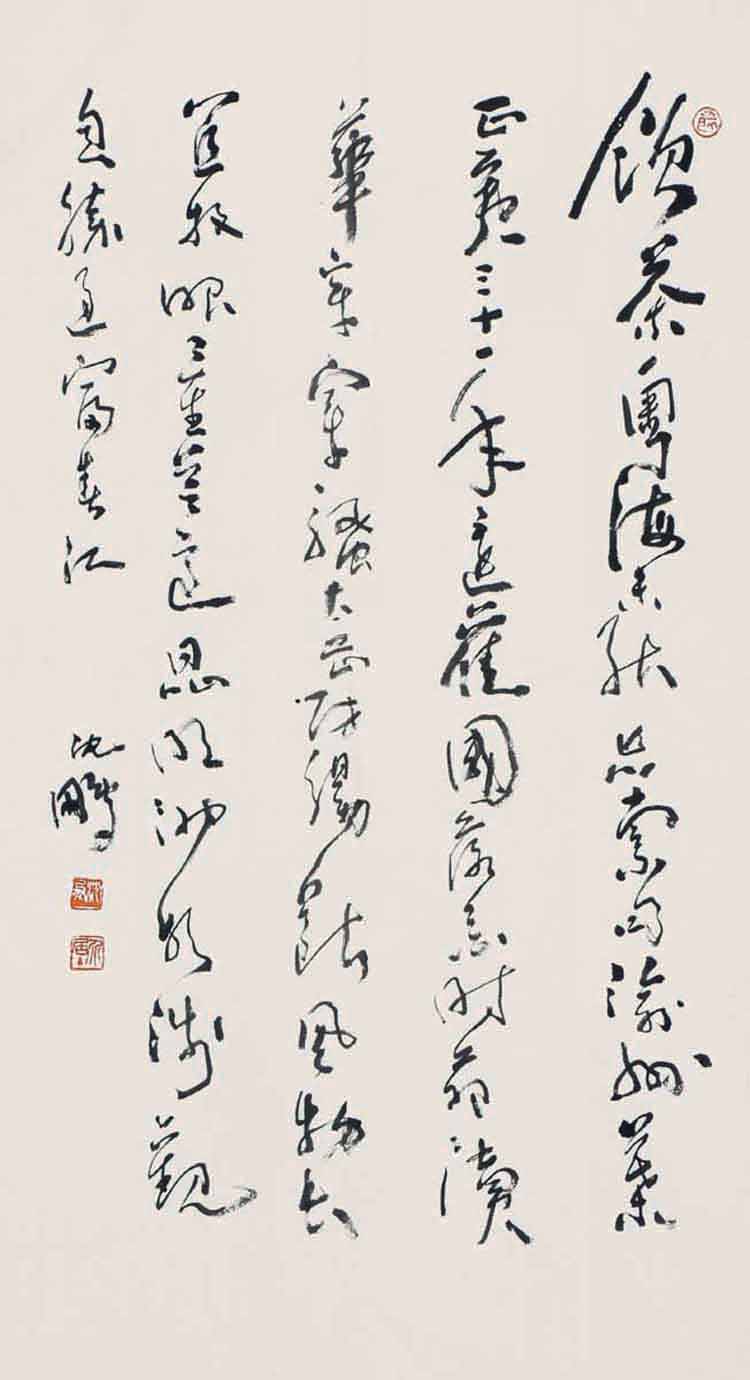 飲茶粵海未能忘索句渝州葉
正黃三十一年還舊國落花時節讀
華章牢騷太盛防腸斷風物長
宜放眼量莫道昆明池水淺觀
魚勝過富春江
沈鵬